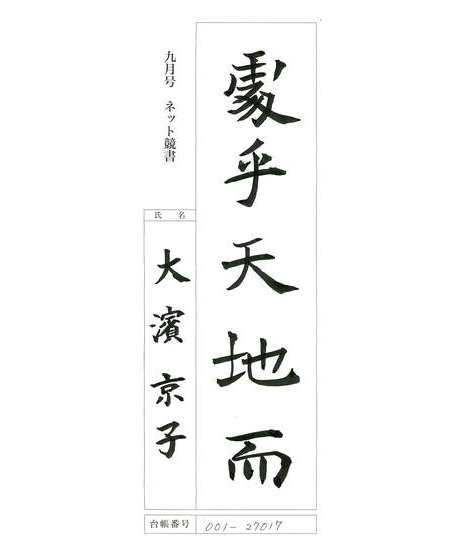 處乎天地而
九月号 ネット競書
氏 名
大濱京子
台帳番号 001-27017